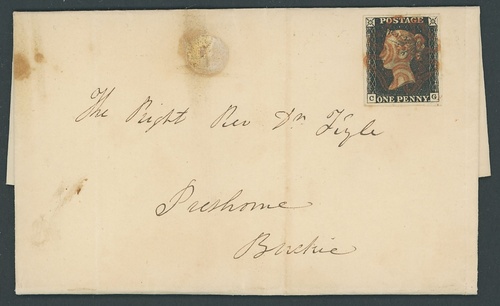 POSTAGE
C ONE PENNY G
The Right Rev Dr Fyfe
Preshome
Buckie